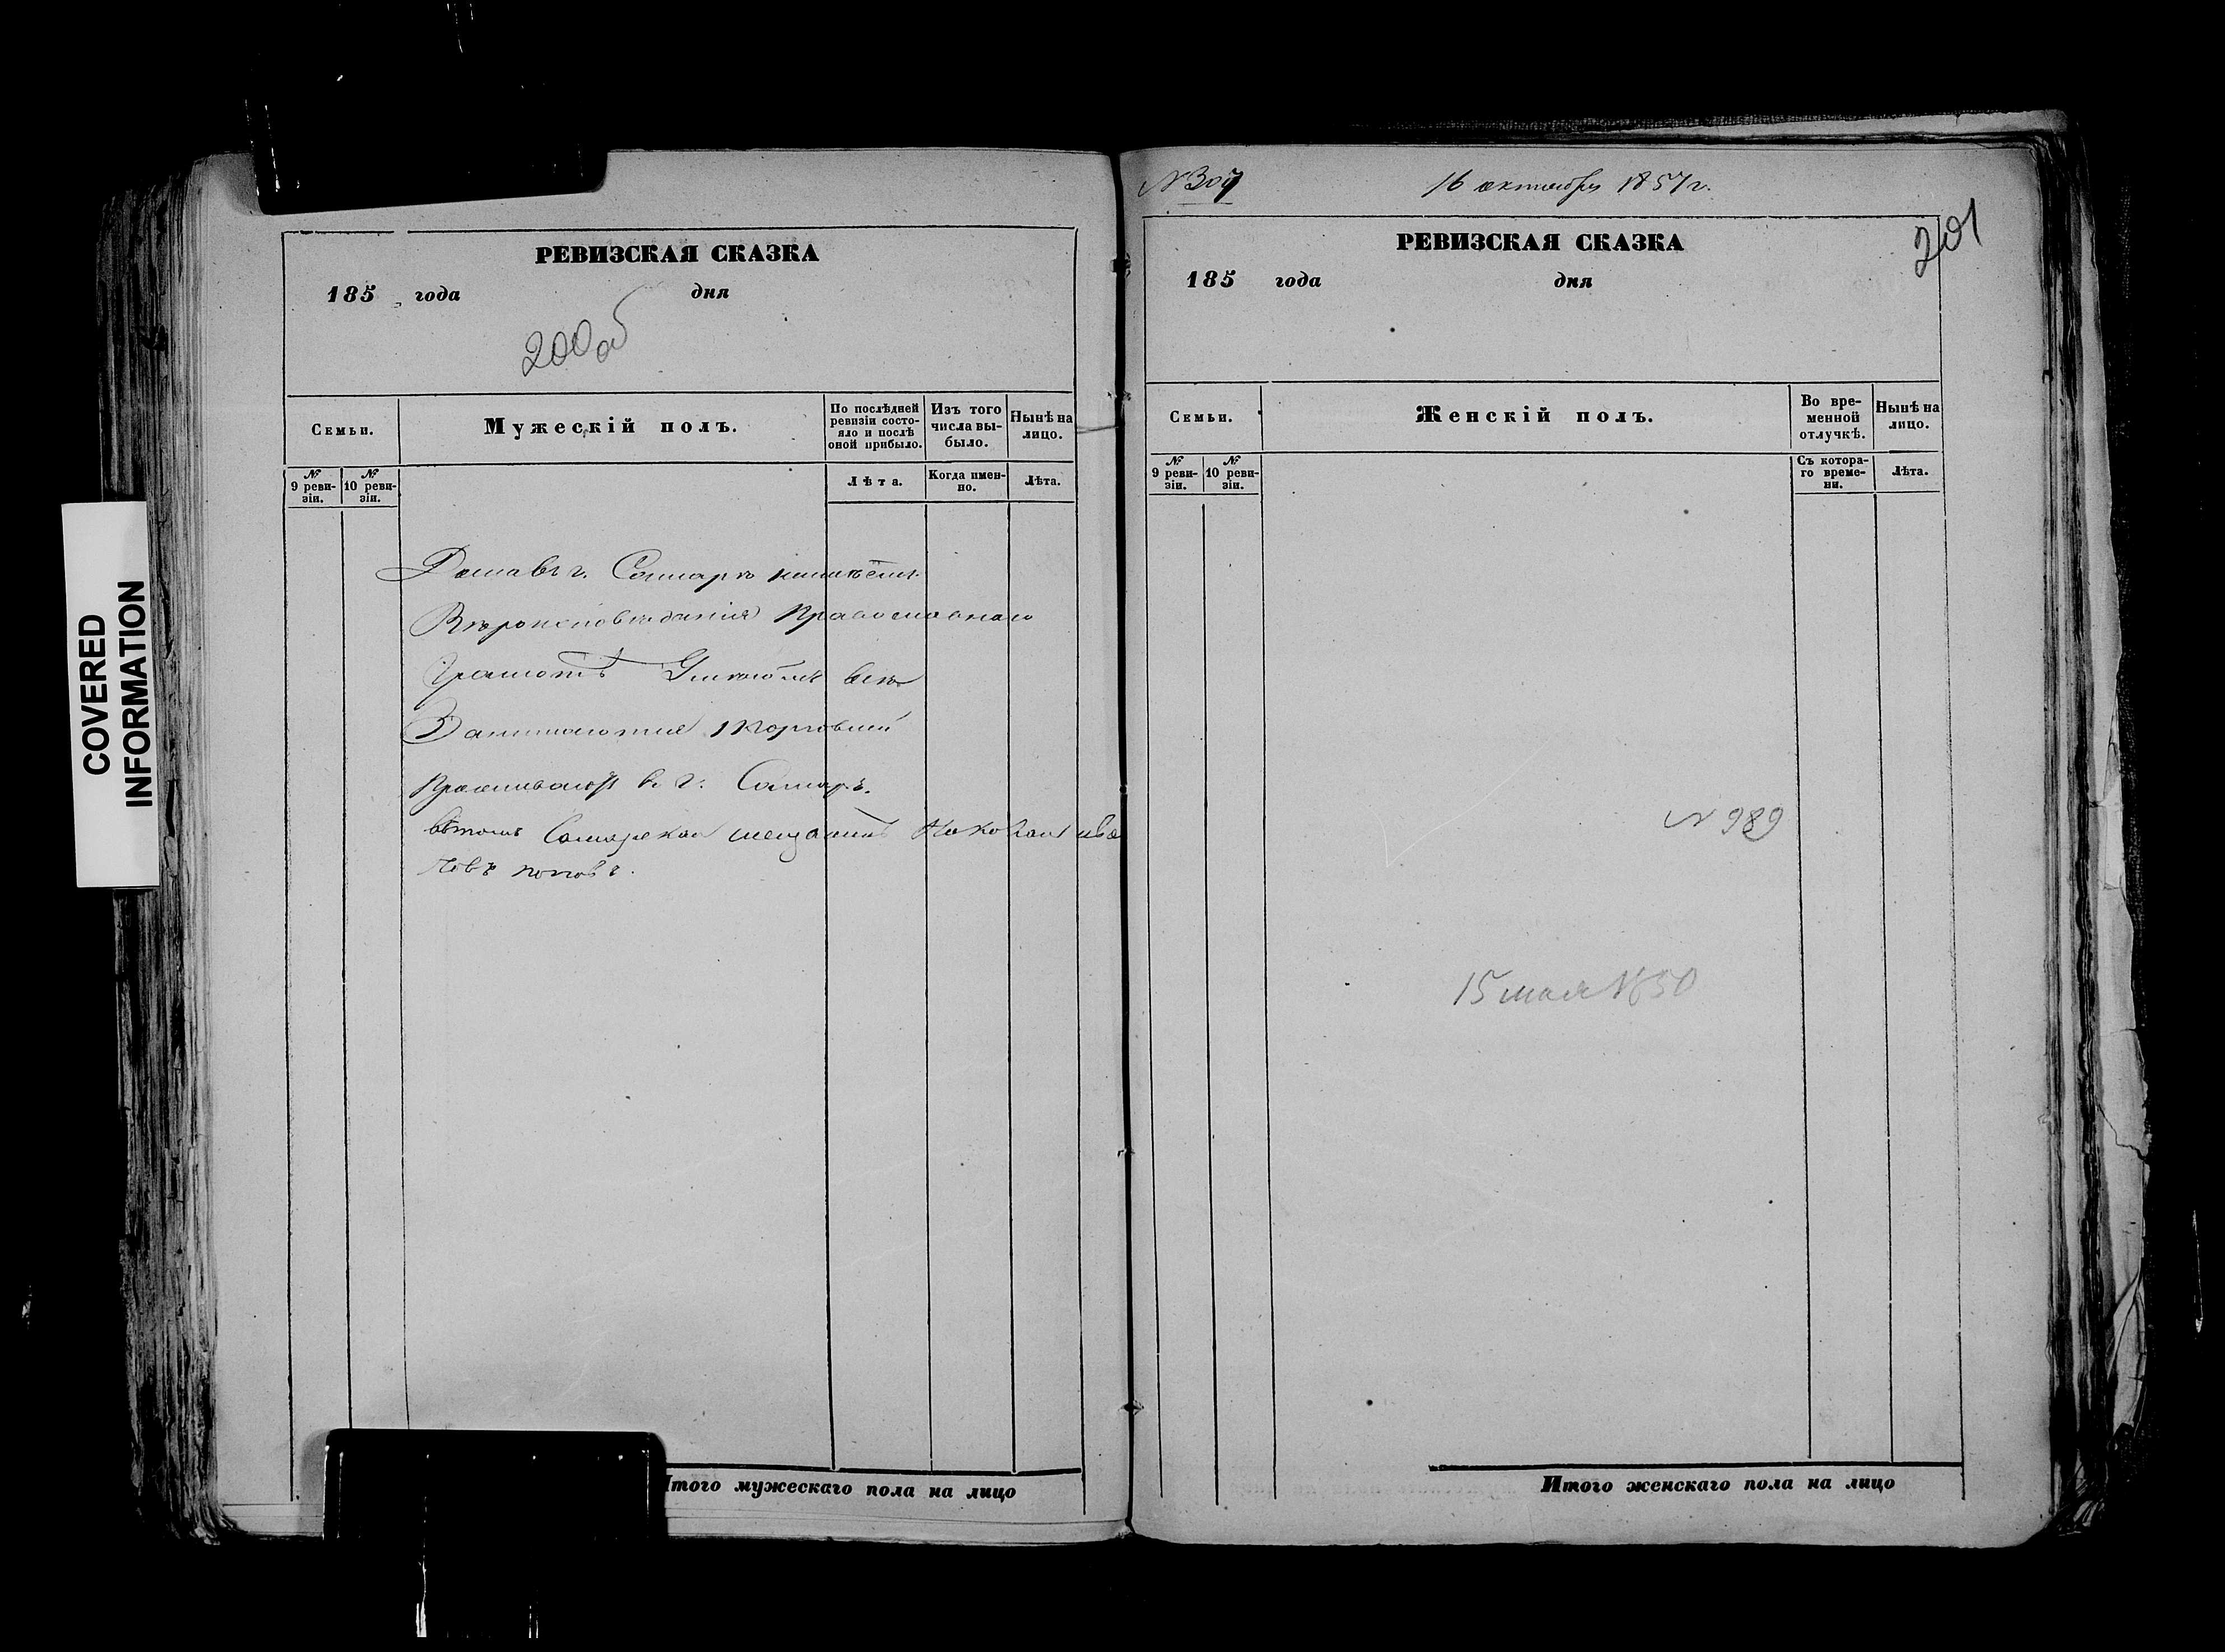 COVERED
INFORMATION
РЕВИЗСКАЯ СКАЗКА
185 года дня
200об
Семьи.
Мужескій полъ.
По послѣдней ревизіи состояло и послѣ оной прибыло.
Изъ того числа выбыло.
Нынѣ на лицо.
№ 9 ревизіи.
№ 10 ревизіи.
Лѣта.
Когда именно.
Лѣта.
Дома въ г. Самарѣ имѣетъ
Вѣроисповѣданія Православнаго
Грамотѣ Умѣютъ всѣ
Занимаются торговлей
Проживаютъ въ г. Самарѣ.
Самарскій мещанинъ Ива
новъ Поповъ.
Итого мужескаго пола на лицо
N 307
16 октября 1857 г.
201
РЕВИЗСКАЯ СКАЗКА
185 года дня
Семьи.
Женскій полъ.
Во временной отлучкѣ.
Нынѣ на лицо.
№ 9 ревизіи.
№ 10 ревизіи.
Съ котораго времени.
Лѣта.
N 989
15 мая 1850
Итого женскаго пола на лицо